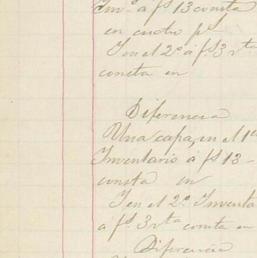 Inv.º á fs 13 consta
en cuatro ps
I en el 2.º á fs 3 vta
consta en
Diferencia
Una capa, en el 1º
Inventario á fs 13 -
consta en
I en el 2.º Inventa
á fs 3 vta consta en
Diferencia